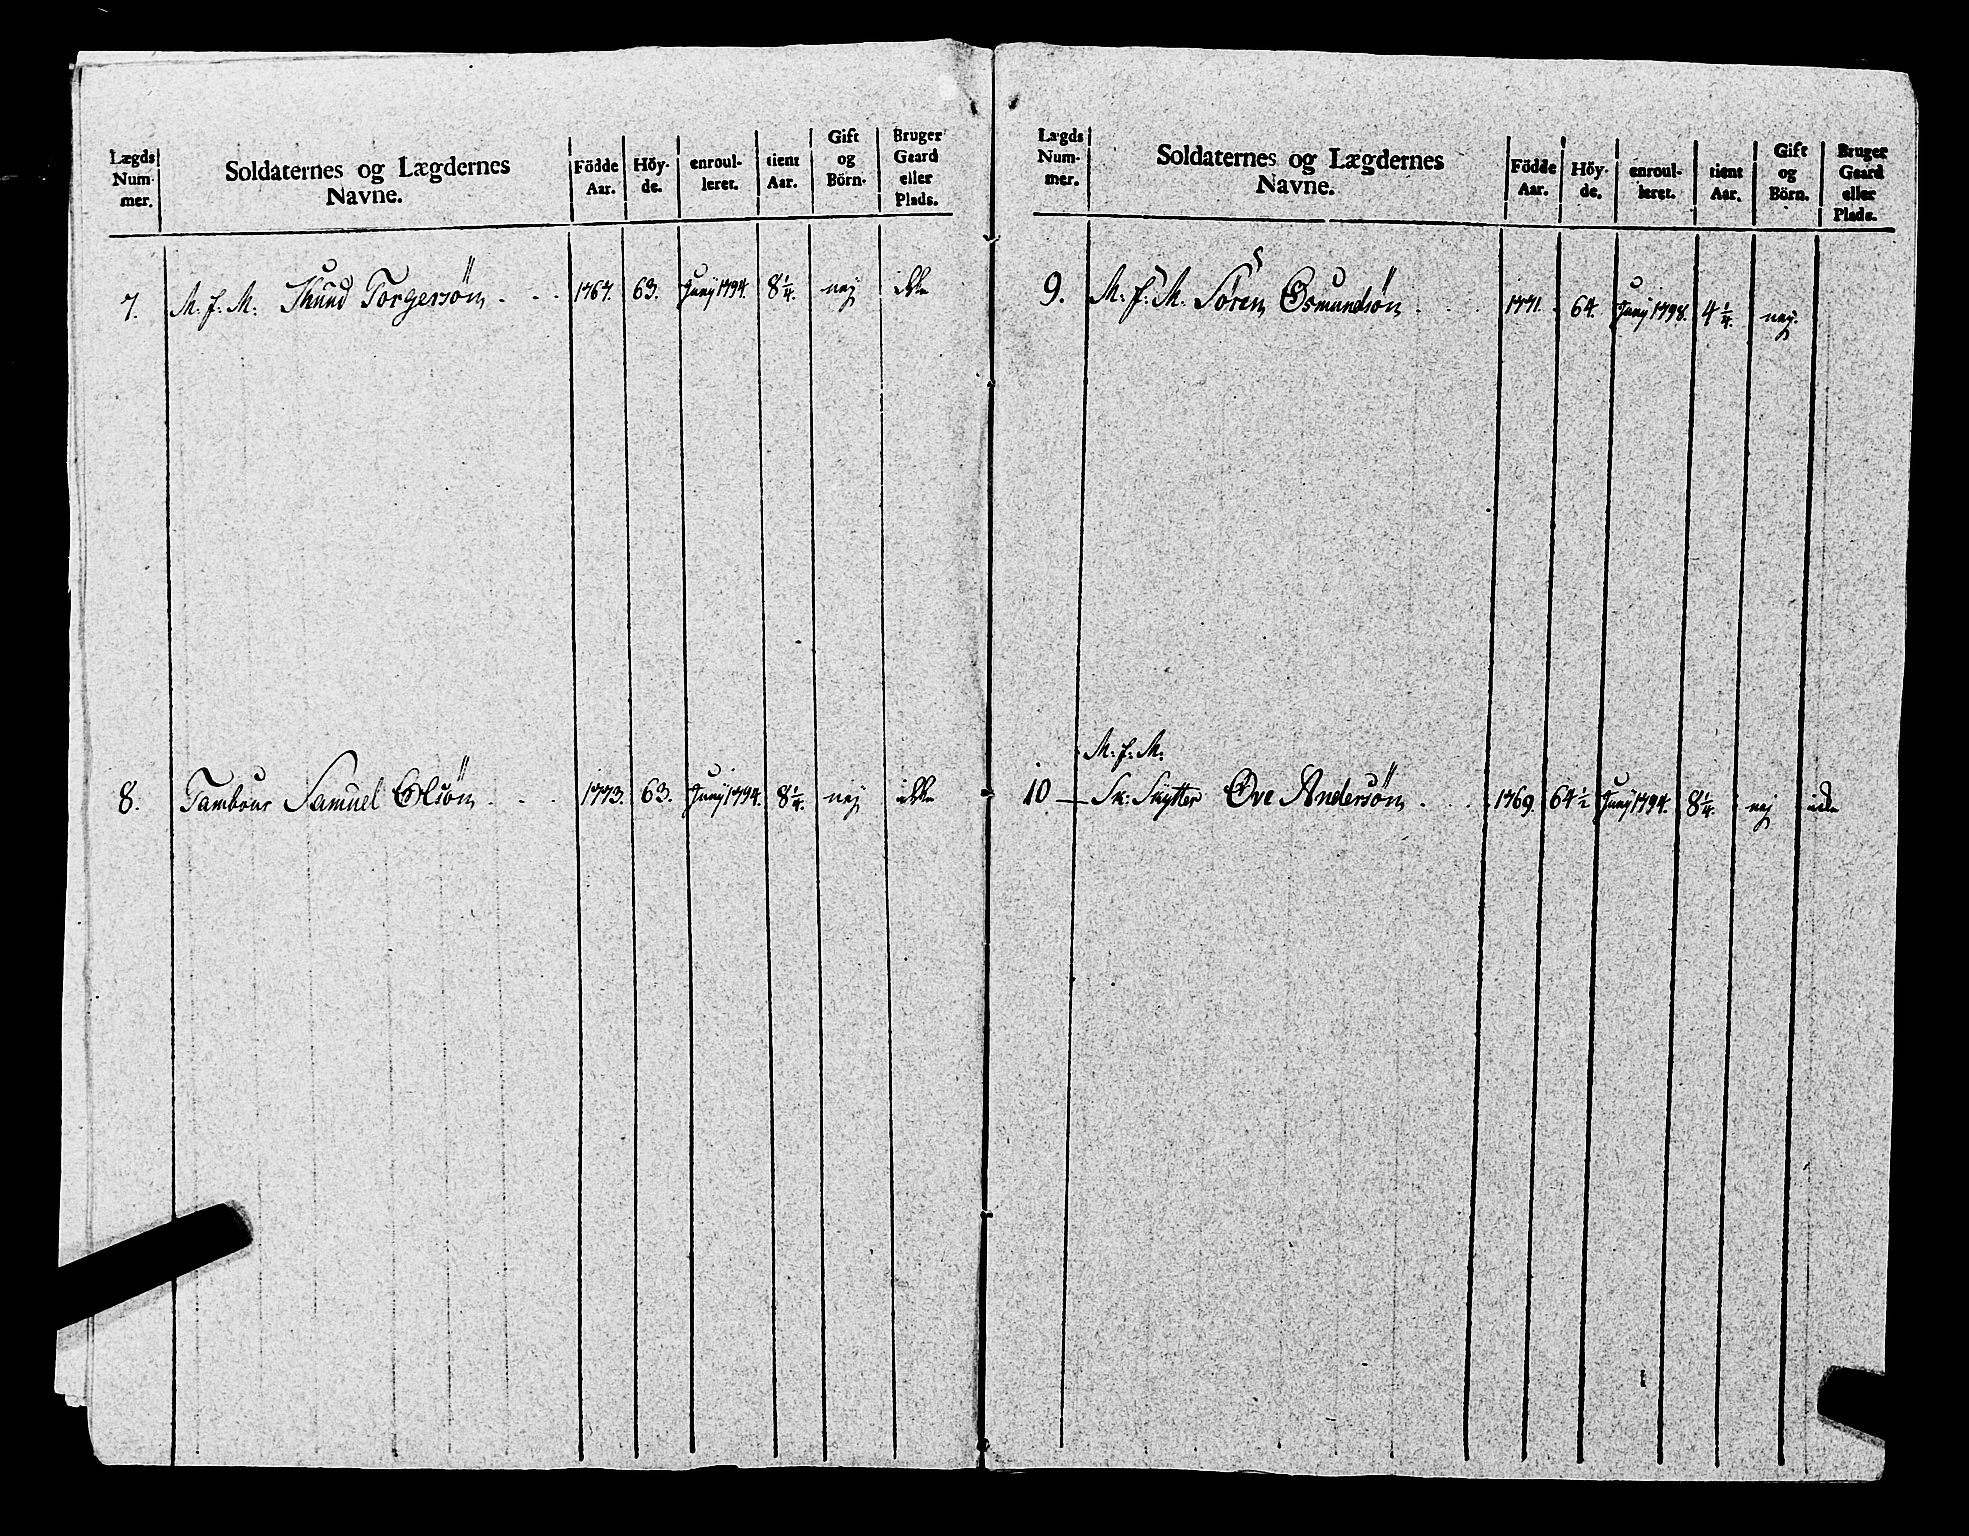 Lægds Num- mer. | Soldaternes og Lægdernes Navne. | Födde Aar. | Höy- de. | enroul- leret. | tient Aar. | Gift og Börn. | Bruger Gaard eller Plads.
7. M. f. M. Knud Torgersön . . . 1767. 63. Junij 1794. 8 1/4. nej ikke
8. Tambour Samuel Olsön . . . 1773. 63. Junij 1794. 8 1/4. nej ikke
Lægds Num- mer. | Soldaternes og Lægdernes Navne. | Födde Aar. | Höy- de. | enroul- leret. | tient Aar. | Gift og Börn. | Bruger Gaard eller Plads.
9. M. f. M. Sören Osmundsön . . . 1771. 64. Junij 1798. 4 1/4. nej.
M. f. M.
10 — Sk: Skytter Ove Andersön . . . 1769. 64 1/2 Junij 1794. 8 1/4. nej ikke